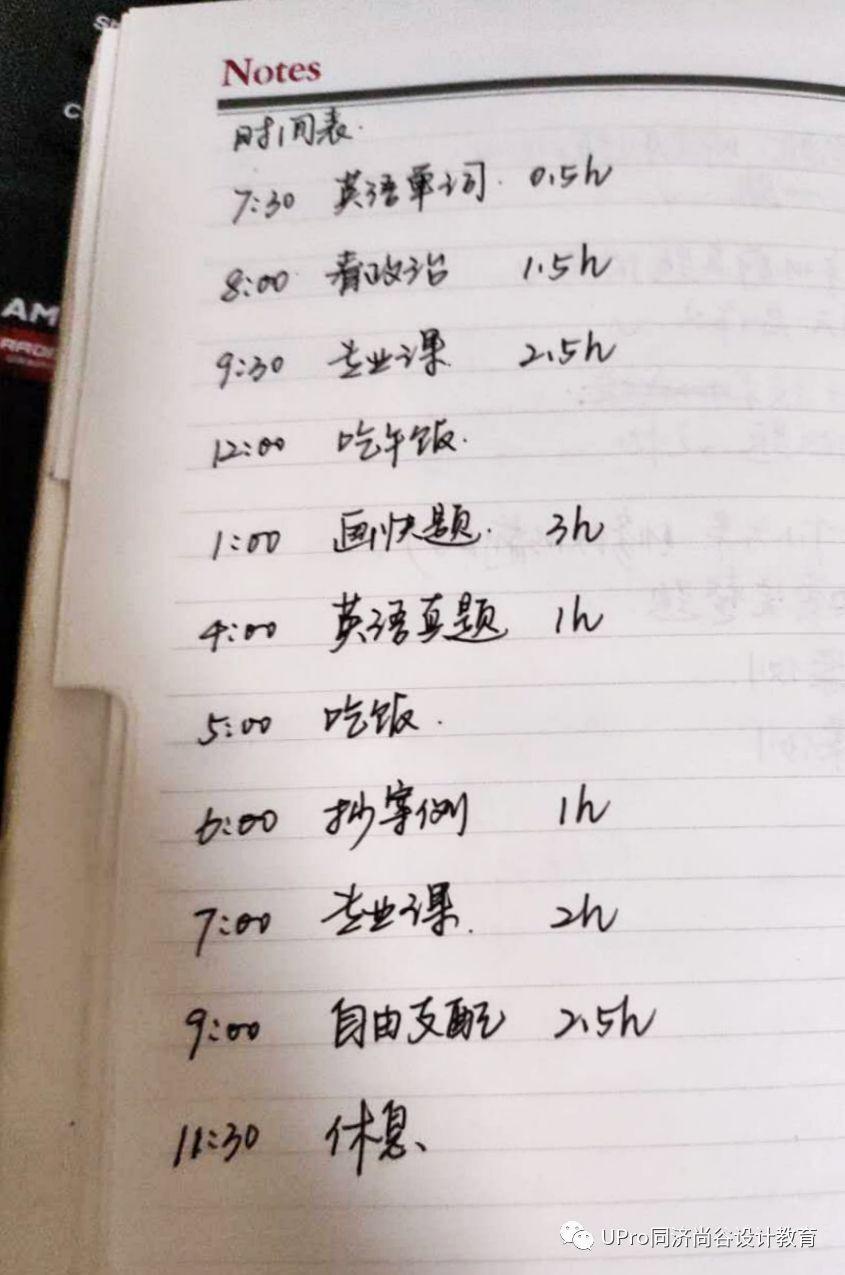 Notes
时间表.
7:30 英语单词. 0.5h
8:00 看政治 1.5h
9:30 专业课 2.5h
12:00 吃午饭.
1:00 画快题. 3h
4:00 英语真题 1h
5:00 吃饭.
6:00 抄案例 1h
7:00 专业课. 2h
9:00 自由支配 2.5h
11:30 休息、
AM
UPro同济尚谷设计教育